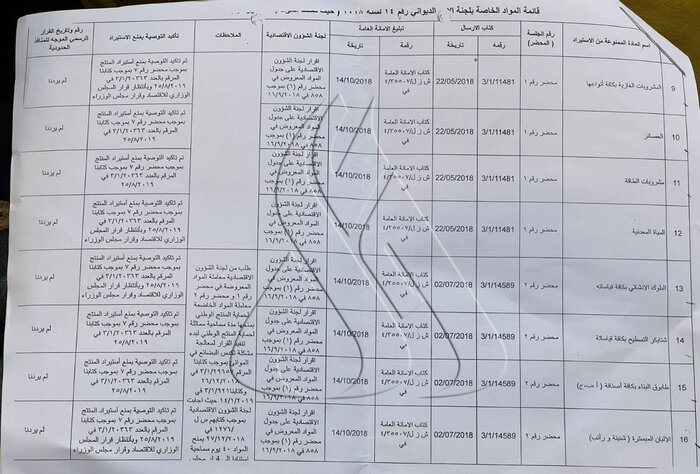 قائمة المواد الخاصة بلجنة الديواني رقم ١٤ لسنة ٢٠١٨
اسم المادة الممنوعة من الاستيراد
رقم الجلسة (المحضر)
كتاب الارسال
رقمه
تاريخه
تبليغ الامانة العامة
رقمه
تاريخه
لجنة الشؤون الاقتصادية
الملاحظات
تأكيد التوصية بمنع الاستيراد
رقم وتاريخ القرار الرسمي الموجه للمنافذ الحدودية
9
المشروبات الغازية بكافة أنواعها
محضر رقم ١
3/1/11481
22/05/2018
كتاب الامانة العامة
ش ز ل/٤/٣٥٥٠٧ في
14/10/2018
اقرار لجنة الشؤون
الاقتصادية على جدول
المواد المعروض في
محضر رقم (١) بموجب
٨٥٨ في ١٦/٩/٢٠١٨
تم تاكيد التوصية بمنع أستيراد المنتج
بموجب محضر رقم ٧ بموجب كتابنا
المرقم بالعدد ٣/١/٢٠٣٦٣ في
٢٥/٨/٢٠١٩ وبأنتظار قرار المجلس
الوزاري للاقتصاد وقرار مجلس الوزراء
لم يردنا
10
العصائر
محضر رقم ١
3/1/11481
22/05/2018
كتاب الامانة العامة
ش ز ل/٤/٣٥٥٠٧ في
14/10/2018
اقرار لجنة الشؤون
الاقتصادية على جدول
المواد المعروض في
محضر رقم (١) بموجب
٨٥٨ في ١٦/٩/٢٠١٨
تم تاكيد التوصية بمنع أستيراد المنتج
بموجب محضر رقم ٧ بموجب كتابنا
المرقم بالعدد ٣/١/٢٠٣٦٣ في
٢٥/٨/٢٠١٩
لم يردنا
11
مشروبات الطاقة
محضر رقم ١
3/1/11481
22/05/2018
كتاب الامانة العامة
ش ز ل/٤/٣٥٥٠٧ في
14/10/2018
اقرار لجنة الشؤون
الاقتصادية على جدول
المواد المعروض في
محضر رقم (١) بموجب
٨٥٨ في ١٦/٩/٢٠١٨
تم تاكيد التوصية بمنع أستيراد المنتج
بموجب محضر رقم ٧ بموجب كتابنا
المرقم بالعدد ٣/١/٢٠٣٦٣ في
٢٥/٨/٢٠١٩
لم يردنا
12
المياة المعدنية
محضر رقم ١
3/1/11481
22/05/2018
كتاب الامانة العامة
ش ز ل/٤/٣٥٥٠٧ في
14/10/2018
اقرار لجنة الشؤون
الاقتصادية على جدول
المواد المعروض في
محضر رقم (١) بموجب
٨٥٨ في ١٦/٩/٢٠١٨
تم تاكيد التوصية بمنع أستيراد المنتج
بموجب محضر رقم ٧ بموجب كتابنا
المرقم بالعدد ٣/١/٢٠٣٦٣ في
٢٥/٨/٢٠١٩ وبأنتظار قرار المجلس
الوزاري للاقتصاد وقرار مجلس الوزراء
لم يردنا
13
البلوك الانشائي بكافة قياساته
محضر رقم ٢
3/1/14589
02/07/2018
كتاب الامانة العامة
ش ز ل/٤/٣٥٥٠٧ في
14/10/2018
اقرار لجنة الشؤون
الاقتصادية على جدول
المواد المعروض في
محضر رقم (١) بموجب
٨٥٨ في ١٦/٩/٢٠١٨
طلب من لجنة الشؤون
الاقتصادية معاملة المواد
المعروضة في محضر
رقم ١ و محضر رقم ٢
معاملة المواد الخاضعة
لحماية المنتج الوطني
بمنحها مدة سماحية مماثلة
لحماية المنتج الوطني لبدء
تنفيذ القرار لمعالجة
مشكلة تكدس البضائع في
الموانئ بموجب كتابنا
٣/١/٢٩٦٥٧ في
٢٦/١٢/٢٠١٨
وكتابنا ٣/١/٩٢١ في
١٤/١/٢٠١٩ حيث اجابت
لجنة الشؤون الاقتصادية
بموجب كتابهم س ل
١٢٧٦/ في ٢٧/١٢/٢٠١٨
المواد ٤٠ يوم سماحية
تم تاكيد التوصية بمنع أستيراد المنتج
بموجب محضر رقم ٧ بموجب كتابنا
المرقم بالعدد ٣/١/٢٠٣٦٣ في
٢٥/٨/٢٠١٩ وبأنتظار قرار المجلس
الوزاري للاقتصاد وقرار مجلس الوزراء
لم يردنا
14
شتايكر التسطيح بكافة قياساتة
محضر رقم ٢
3/1/14589
02/07/2018
كتاب الامانة العامة
ش ز ل/٤/٣٥٥٠٧ في
14/10/2018
اقرار لجنة الشؤون
الاقتصادية على جدول
المواد المعروض في
محضر رقم (١) بموجب
٨٥٨ في ١٦/٩/٢٠١٨
تم تاكيد التوصية بمنع أستيراد المنتج
بموجب محضر رقم ٧ بموجب كتابنا
المرقم بالعدد ٣/١/٢٠٣٦٣ في
٢٥/٨/٢٠١٩
لم يردنا
15
طابوق البناء بكافة أصنافة (أ،ب،ج)
محضر رقم ٢
3/1/14589
02/07/2018
كتاب الامانة العامة
ش ز ل/٤/٣٥٥٠٧ في
14/10/2018
اقرار لجنة الشؤون
الاقتصادية على جدول
المواد المعروض في
محضر رقم (١) بموجب
٨٥٨ في ١٦/٩/٢٠١٨
تم تاكيد التوصية بمنع أستيراد المنتج
بموجب محضر رقم ٧ بموجب كتابنا
المرقم بالعدد ٣/١/٢٠٣٦٣ في
٢٥/٨/٢٠١٩
لم يردنا
16
الالبان المبسترة (شنينة و رائب)
محضر رقم ٢
3/1/14589
02/07/2018
كتاب الامانة العامة
ش ز ل/٤/٣٥٥٠٧ في
14/10/2018
اقرار لجنة الشؤون
الاقتصادية على جدول
المواد المعروض في
محضر رقم (١) بموجب
٨٥٨ في ١٦/٩/٢٠١٨
تم تاكيد التوصية بمنع أستيراد المنتج
بموجب محضر رقم ٧ بموجب كتابنا
المرقم بالعدد ٣/١/٢٠٣٦٣ في
٢٥/٨/٢٠١٩ وبأنتظار قرار المجلس
الوزاري للاقتصاد وقرار مجلس الوزراء
لم يردنا